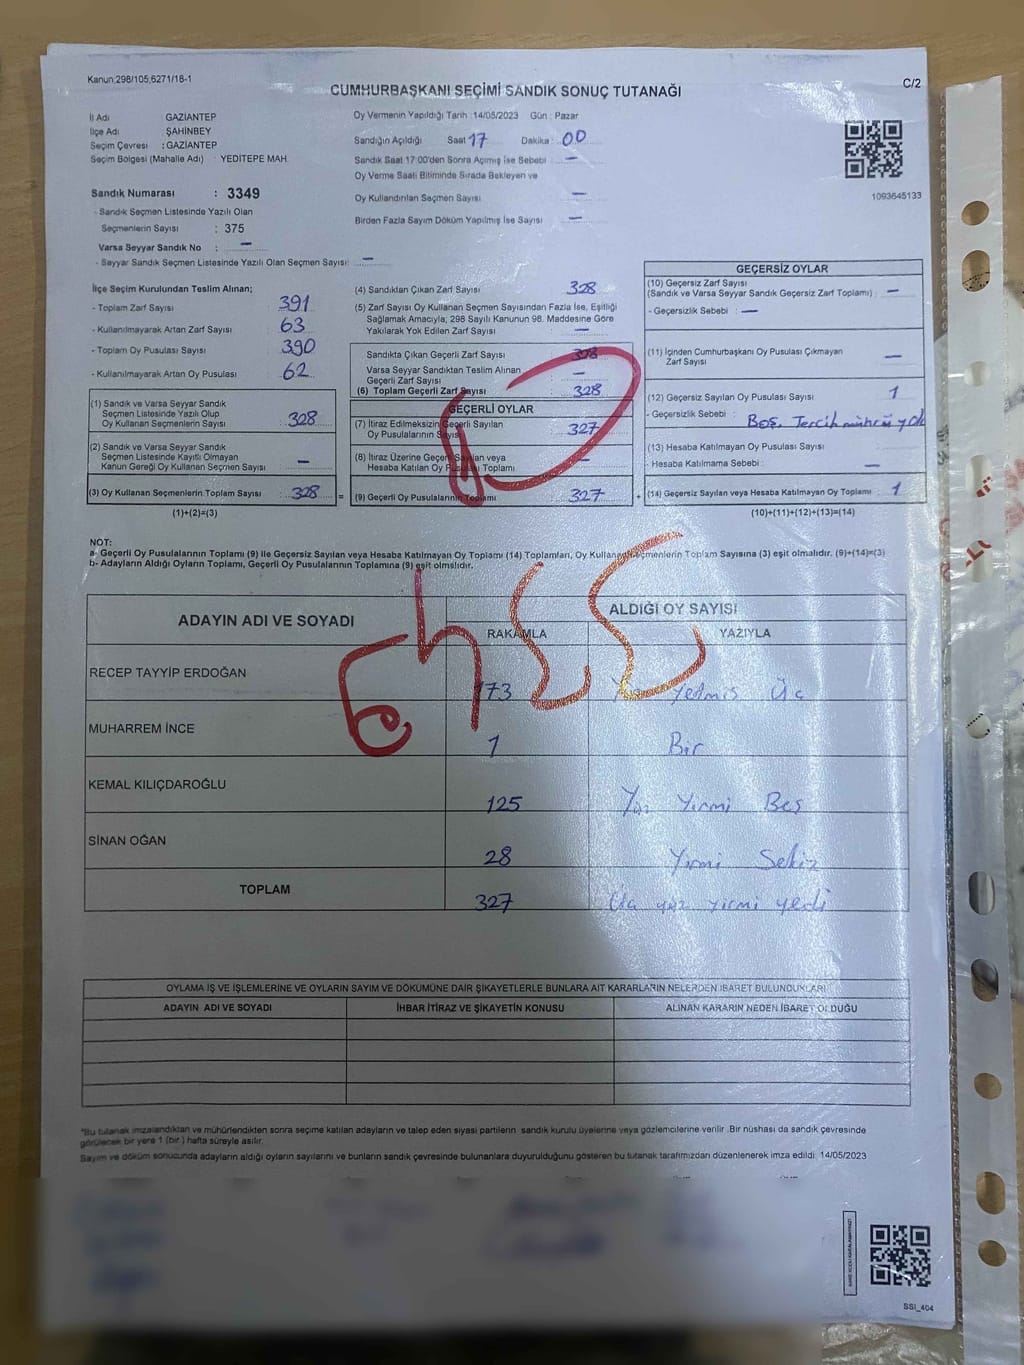 Kanun;298/105,6271/18-1
C/2
CUMHURBAŞKANI SEÇİMİ SANDIK SONUÇ TUTANAĞI
İl Adı GAZİANTEP
İlçe Adı ŞAHİNBEY
Seçim Çevresi : GAZİANTEP
Seçim Bölgesi (Mahalle Adı) : YEDİTEPE MAH.
Sandık Numarası : 3349
- Sandık Seçmen Listesinde Yazılı Olan
Seçmenlerin Sayısı : 375
Varsa Seyyar Sandık No : —
- Seyyar Sandık Seçmen Listesinde Yazılı Olan Seçmen Sayısı: —
Oy Vermenin Yapıldığı Tarih :14/05/2023 Gün : Pazar
Sandığın Açıldığı Saat 17 Dakika : 00
Sandık Saat 17:00'den Sonra Açımış İse Sebebi : —
Oy Verme Saati Bitiminde Sırada Bekleyen ve
Oy Kullandırılan Seçmen Sayısı —
Birden Fazla Sayım Döküm Yapılmış İse Sayısı —
1093645133
İlçe Seçim Kurulundan Teslim Alınan;
- Toplam Zarf Sayısı 391
- Kullanılmayarak Artan Zarf Sayısı 63
- Toplam Oy Pusulası Sayısı 390
- Kullanılmayarak Artan Oy Pusulası 62
(1) Sandık ve Varsa Seyyar Sandık
Seçmen Listesinde Yazılı Olup
Oy Kullanan Seçmenlerin Sayısı 328
(2) Sandık ve Varsa Seyyar Sandık
Seçmen Listesinde Kayıtlı Olmayan
Kanun Gereği Oy Kullanan Seçmen Sayısı —
(3) Oy Kullanan Seçmenlerin Toplam Sayısı 328 =
(1)+(2)=(3)
(4) Sandıktan Çıkan Zarf Sayısı 328
(5) Zarf Sayısı Oy Kullanan Seçmen Sayısından Fazla İse, Eşitliği
Sağlamak Amacıyla; 298 Sayılı Kanunun 98. Maddesine Göre
Yakılarak Yok Edilen Zarf Sayısı —
Sandıkta Çıkan Geçerli Zarf Sayısı 328
Varsa Seyyar Sandıktan Teslim Alınan
Geçerli Zarf Sayısı —
(6) Toplam Geçerli Zarf Sayısı 328
GEÇERLİ OYLAR
(7) İtiraz Edilmeksizin Geçerli Sayılan
Oy Pusulalarının Sayısı 327
(8) İtiraz Üzerine Geçerli Sayılan veya
Hesaba Katılan Oy Pusulası Toplamı —
(9) Geçerli Oy Pusulalarının Toplamı 327 +
GEÇERSİZ OYLAR
(10) Geçersiz Zarf Sayısı
(Sandık ve Varsa Seyyar Sandık Geçersiz Zarf Toplamı) : —
- Geçersizlik Sebebi : —
(11) İçinden Cumhurbaşkanı Oy Pusulası Çıkmayan
Zarf Sayısı —
(12) Geçersiz Sayılan Oy Pusulası Sayısı 1
- Geçersizlik Sebebi : Boş. Tercih mührü yok
(13) Hesaba Katılmayan Oy Pusulası Sayısı
- Hesaba Katılmama Sebebi : —
(14) Geçersiz Sayılan veya Hesaba Katılmayan Oy Toplamı 1
(10)+(11)+(12)+(13)=(14)
NOT:
a- Geçerli Oy Pusulalarının Toplamı (9) ile Geçersiz Sayılan veya Hesaba Katılmayan Oy Toplamı (14) Toplamları, Oy Kullanan Seçmenlerin Toplam Sayısına (3) eşit olmalıdır. (9)+(14)=(3)
b- Adayların Aldığı Oyların Toplamı, Geçerli Oy Pusulalarının Toplamına (9) eşit olmalıdır.
ADAYIN ADI VE SOYADI
ALDIĞI OY SAYISI
RAKAMLA YAZIYLA
RECEP TAYYİP ERDOĞAN 173 Yüz Yetmiş Üç
MUHARREM İNCE 1 Bir
KEMAL KILIÇDAROĞLU 125 Yüz Yirmi Beş
SİNAN OĞAN 28 Yirmi Sekiz
TOPLAM 327 Üç yüz yirmi yedi
OYLAMA İŞ VE İŞLEMLERİNE VE OYLARIN SAYIM VE DÖKÜMÜNE DAİR ŞİKAYETLERLE BUNLARA AİT KARARLARIN NELERDEN İBARET BULUNDUKLARI
ADAYIN ADI VE SOYADI İHBAR İTİRAZ VE ŞİKAYETİN KONUSU ALINAN KARARIN NEDEN İBARET OLDUĞU
*Bu tutanak imzalandıktan ve mühürlendikten sonra seçime katılan adayların ve talep eden siyasi partilerin sandık kurulu üyelerine veya gözlemcilerine verilir .Bir nüshası da sandık çevresinde
görülecek bir yere 1 (bir) hafta süreyle asılır.
Sayım ve döküm sonucunda adayların aldığı oyların sayılarını ve bunların sandık çevresinde bulunanlara duyurulduğunu gösteren bu tutanak tarafımızdan düzenlenerek imza edildi. 14/05/2023
SSİ_404